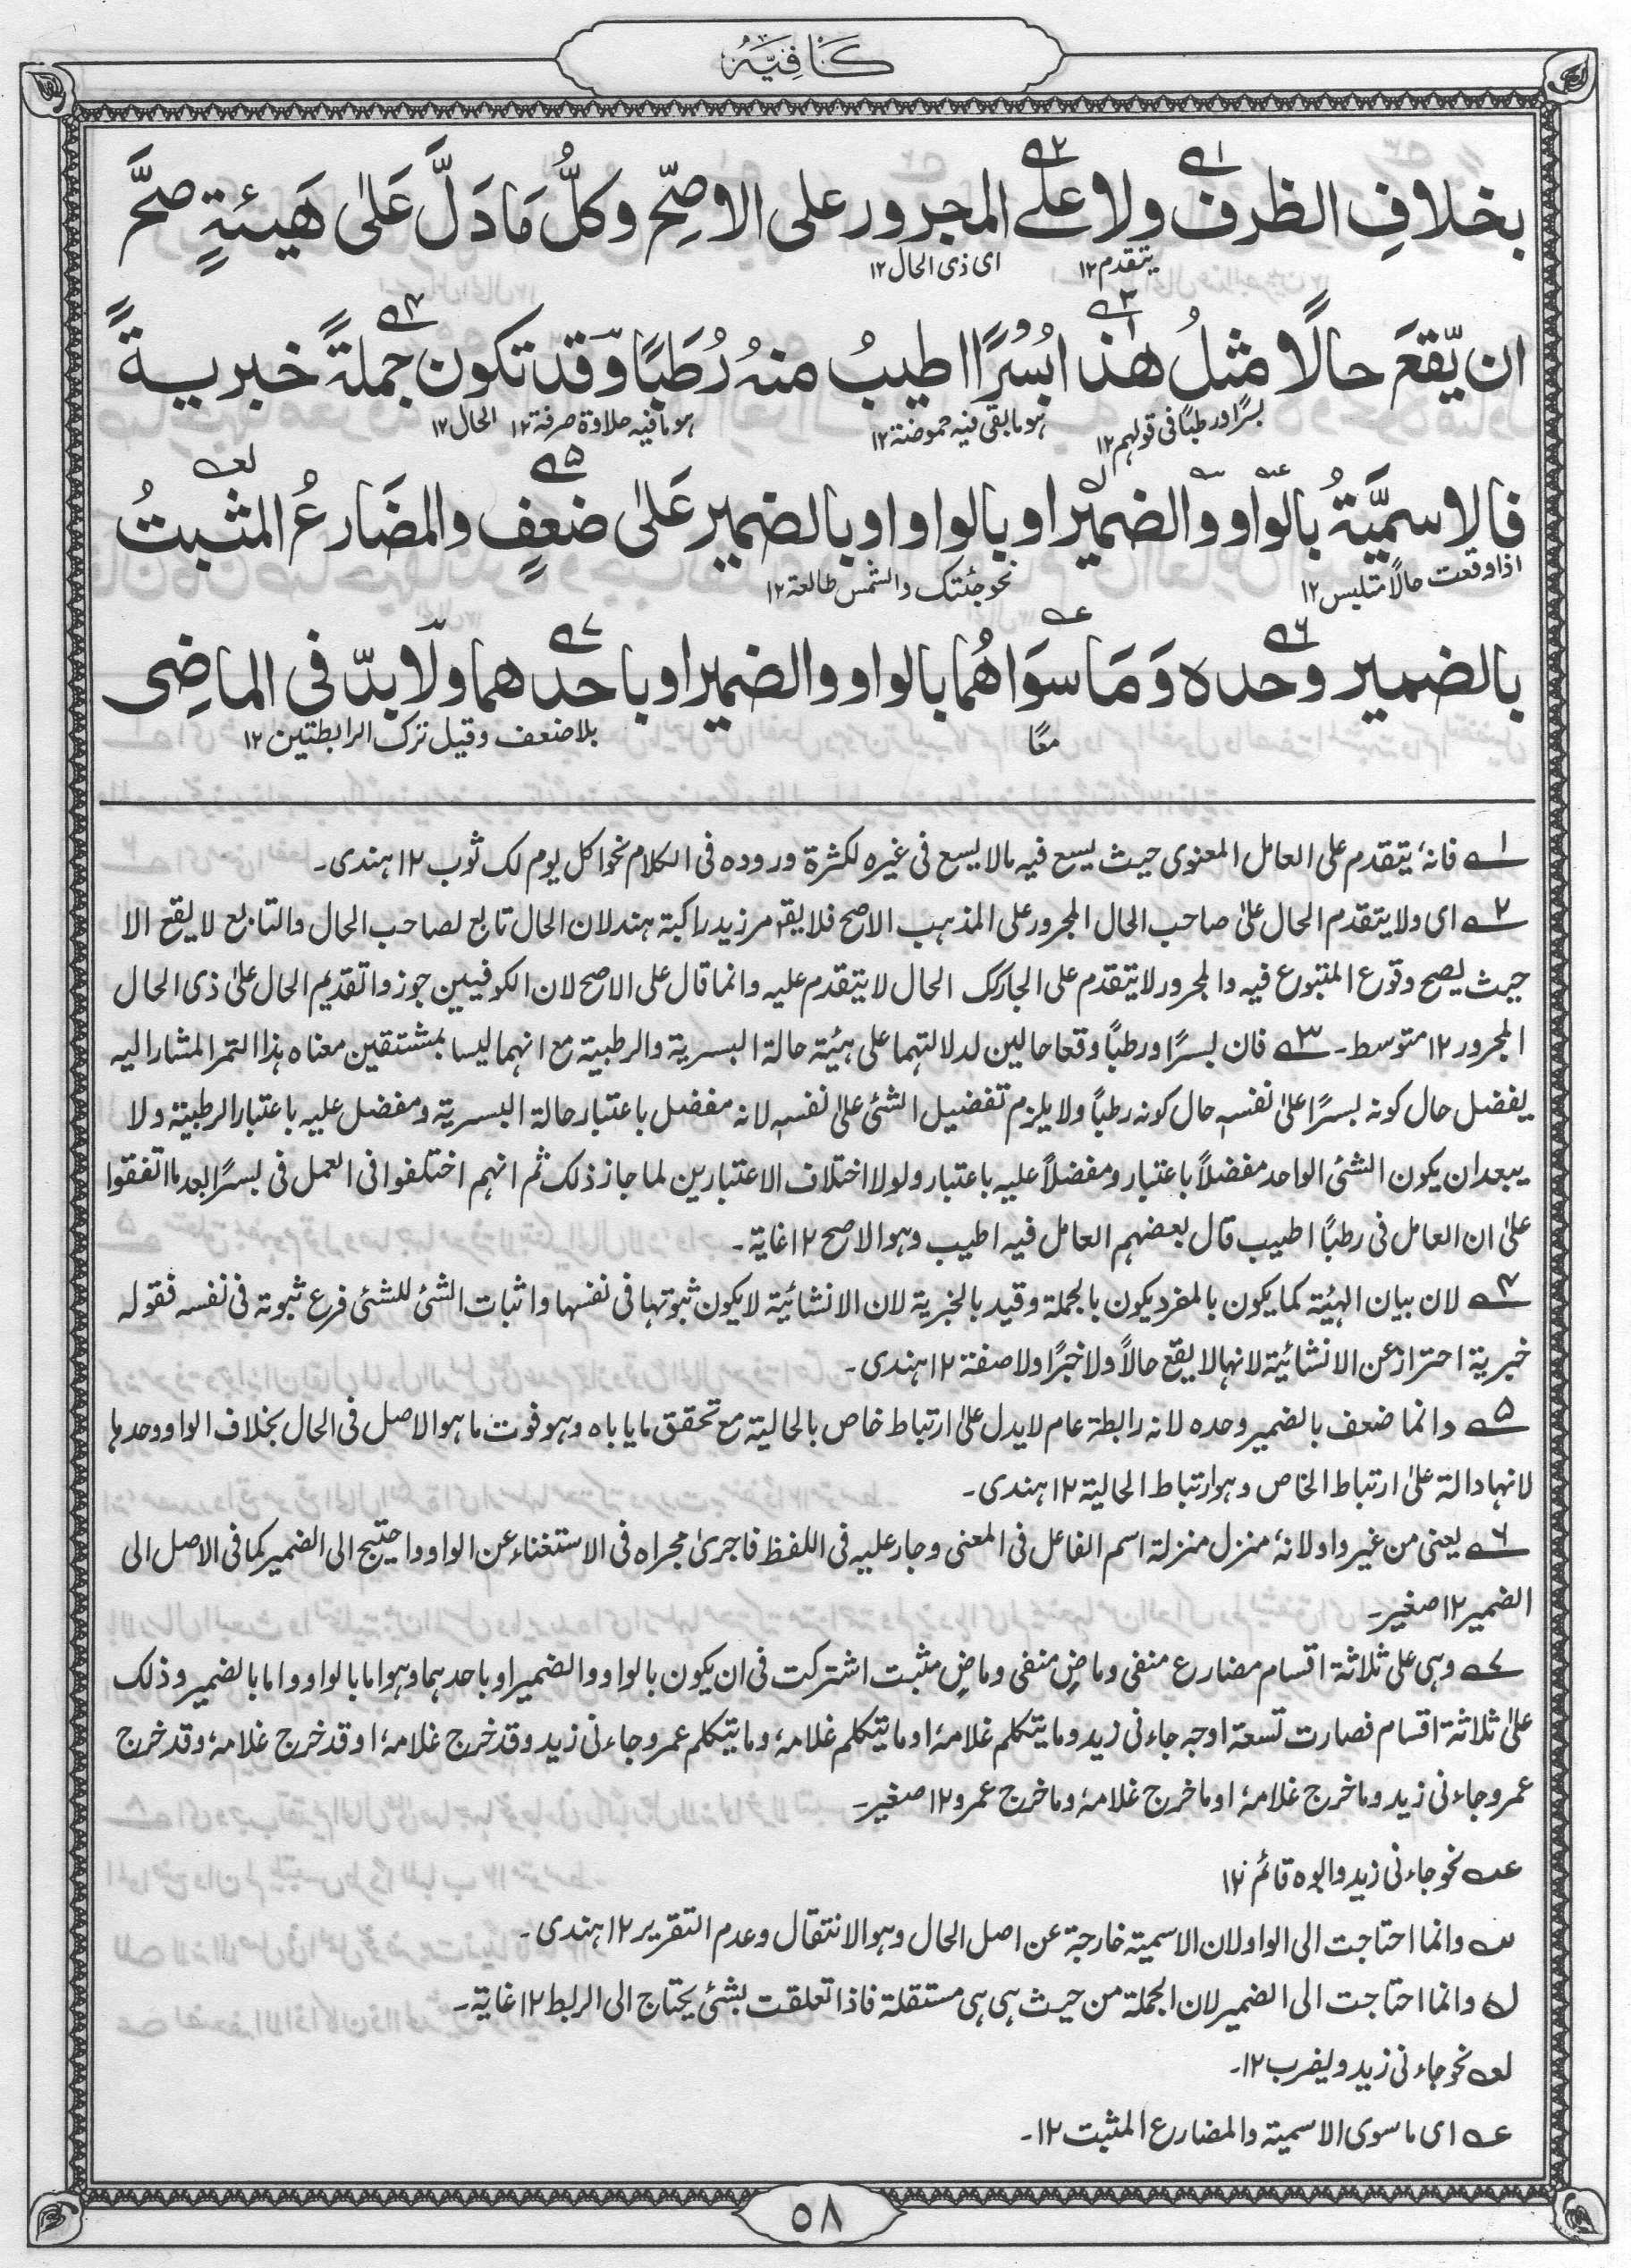 كَافِيَه
بخلافِ الظرف ولا علے المجرور على الاصِحّ وكلُّ مَا دَلَّ عَلىٰ هَيئةٍ صحَّ
يتقدم ١٢ اى ذى الحال ١٢
ان يّقعَ حالًا مثلُ هٰذا بُسْرًا اطيبُ منهُ رُطَبًا وقد تكون جملةً خبريةً
بسرًا ورطبًا فى قولهم ١٢ ہو ما بقى فيہ حموضۃ ١٢ ہو ما فيہ حلاوة صرفۃ ١٢ الحال ١٢
فالاسميَّةُ بالواو والضمير او بالواو او بالضمير عَلىٰ ضعفٍ والمضَارعُ المثبتُ
اذا وقعت حالًا متلبس ١٢ نحو جئتك والشمس طالعۃ ١٢
بالضمير وحدہ وَمَا سوَاهُما بالواو والضمير او باحدهما ولا بدّ فى الماضِى
معًا بلا ضعف وقيل ترك الرابطتين ١٢
١ے فانہٗ يتقدم على العامل المعنوى حيث يسع فيہ مالا يسع فى غيره لكثرة وروده فى الكلام نحو اكل يوم لك ثوب ١٢ ہندى۔
٢ے اى ولا يتقدم الحال علىٰ صاحب الحال المجرور على المذہب الاصح فلا يقو مر زيد راكبۃ ہند لان الحال تابع لصاحب الحال والتابع لا يقع الا
حيث يصح وقوع المتبوع فيہ والمجرور لا يتقدم على الجار كك الحال لا يتقدم عليہ وانما قال على الاصح لان الكوفيين جوزوا تقديم الحال علىٰ ذى الحال
المجرور ١٢ متوسط۔ ٣ے فان بسرًا ورطبًا وقعا حالين لدلالتہما على ہيئۃ حالۃ البسريۃ والرطبيۃ مع انہما ليسا بمشتقين معناه ہذا التمر المشار اليہ
يفضل حال كونہ بسرًا علىٰ نفسہ حال كونہ رطبًا ولا يلزم تفضيل الشئ علىٰ نفسہ لانہ مفضل باعتبار حالۃ البسريۃ ومفضل عليہ باعتبار الرطبيۃ ولا
يبعد ان يكون الشئ الواحد مفضلًا باعتبار ومفضلًا عليہ باعتبار ولولا اختلاف الاعتبارين لما جاز ذلك ثم انہم اختلفوا فى العمل فى بسرًا بعد ما اتفقوا
علىٰ ان العامل فى رطبًا اطيب قال بعضہم العامل فيہ اطيب وہو الاصح ١٢ غايۃ۔
٤ے لان بيان الہيئۃ كما يكون بالمفرد يكون بالجملۃ وقيد بالخبريۃ لان الانشائيۃ لا يكون ثبوتہا فى نفسہا واثبات الشئ للشئ فرع ثبوتہ فى نفسہ فقولہ
خبريۃ احتراز عن الانشائيۃ لانہا لا يقع حالًا ولا خبرًا ولا صفۃ ١٢ ہندى۔
٥ے وانما ضعف بالضمير وحده لانہ رابطۃ عام لا يدل علىٰ ارتباط خاص بالحاليۃ مع تحقق ما يا باه وہو فوت ما ہو الاصل فى الحال بخلاف الواو وحدہا
لانہا دالۃ علىٰ ارتباط الخاص وہو ارتباط الحاليۃ ١٢ ہندى۔
٦ے يعنى من غير واو لانہٗ منزل منزلۃ اسم الفاعل فى المعنى وجار عليہ فى اللفظ فاجرىٰ مجراه فى الاستغناء عن الواو واحتيج الى الضمير كما فى الاصل الى
الضمير ١٢ صغير۔
٧ے وہى على ثلاثۃ اقسام مضارع منفى وماضٍ منفى وماضٍ مثبت اشتركت فى ان يكون بالواو والضمير او باحدہما وہو اما بالواو واما بالضمير وذلك
علىٰ ثلاثۃ اقسام فصارت تسعۃ اوجہ جاءنى زيد وما يتكلم غلامہٗ او ما يتكلم غلامہٗ وما يتكلم عمرو جاءنى زيد وقد خرج غلامہٗ او قد خرج غلامہٗ وقد خرج
عمرو جاءنى زيد وما خرج غلامہٗ او ما خرج غلامہٗ وما خرج عمرو ١٢ صغير۔
عہ نحو جاءنى زيد وابوه قائم ١٢
سہ وانما احتاجت الى الواو لان الاسميۃ خارجۃ عن اصل الحال وہو الانتقال وعدم التقرير ١٢ ہندى۔
لہ وانما احتاجت الى الضمير لان الجملۃ من حيث ہى ہى مستقلۃ فاذا تعلقت بشئ يحتاج الى الربط ١٢ غايۃ۔
لعہ نحو جاءنى زيد ويضرب ١٢۔
عہ اى ما سوى الاسميۃ والمضارع المثبت ١٢۔
٥٨